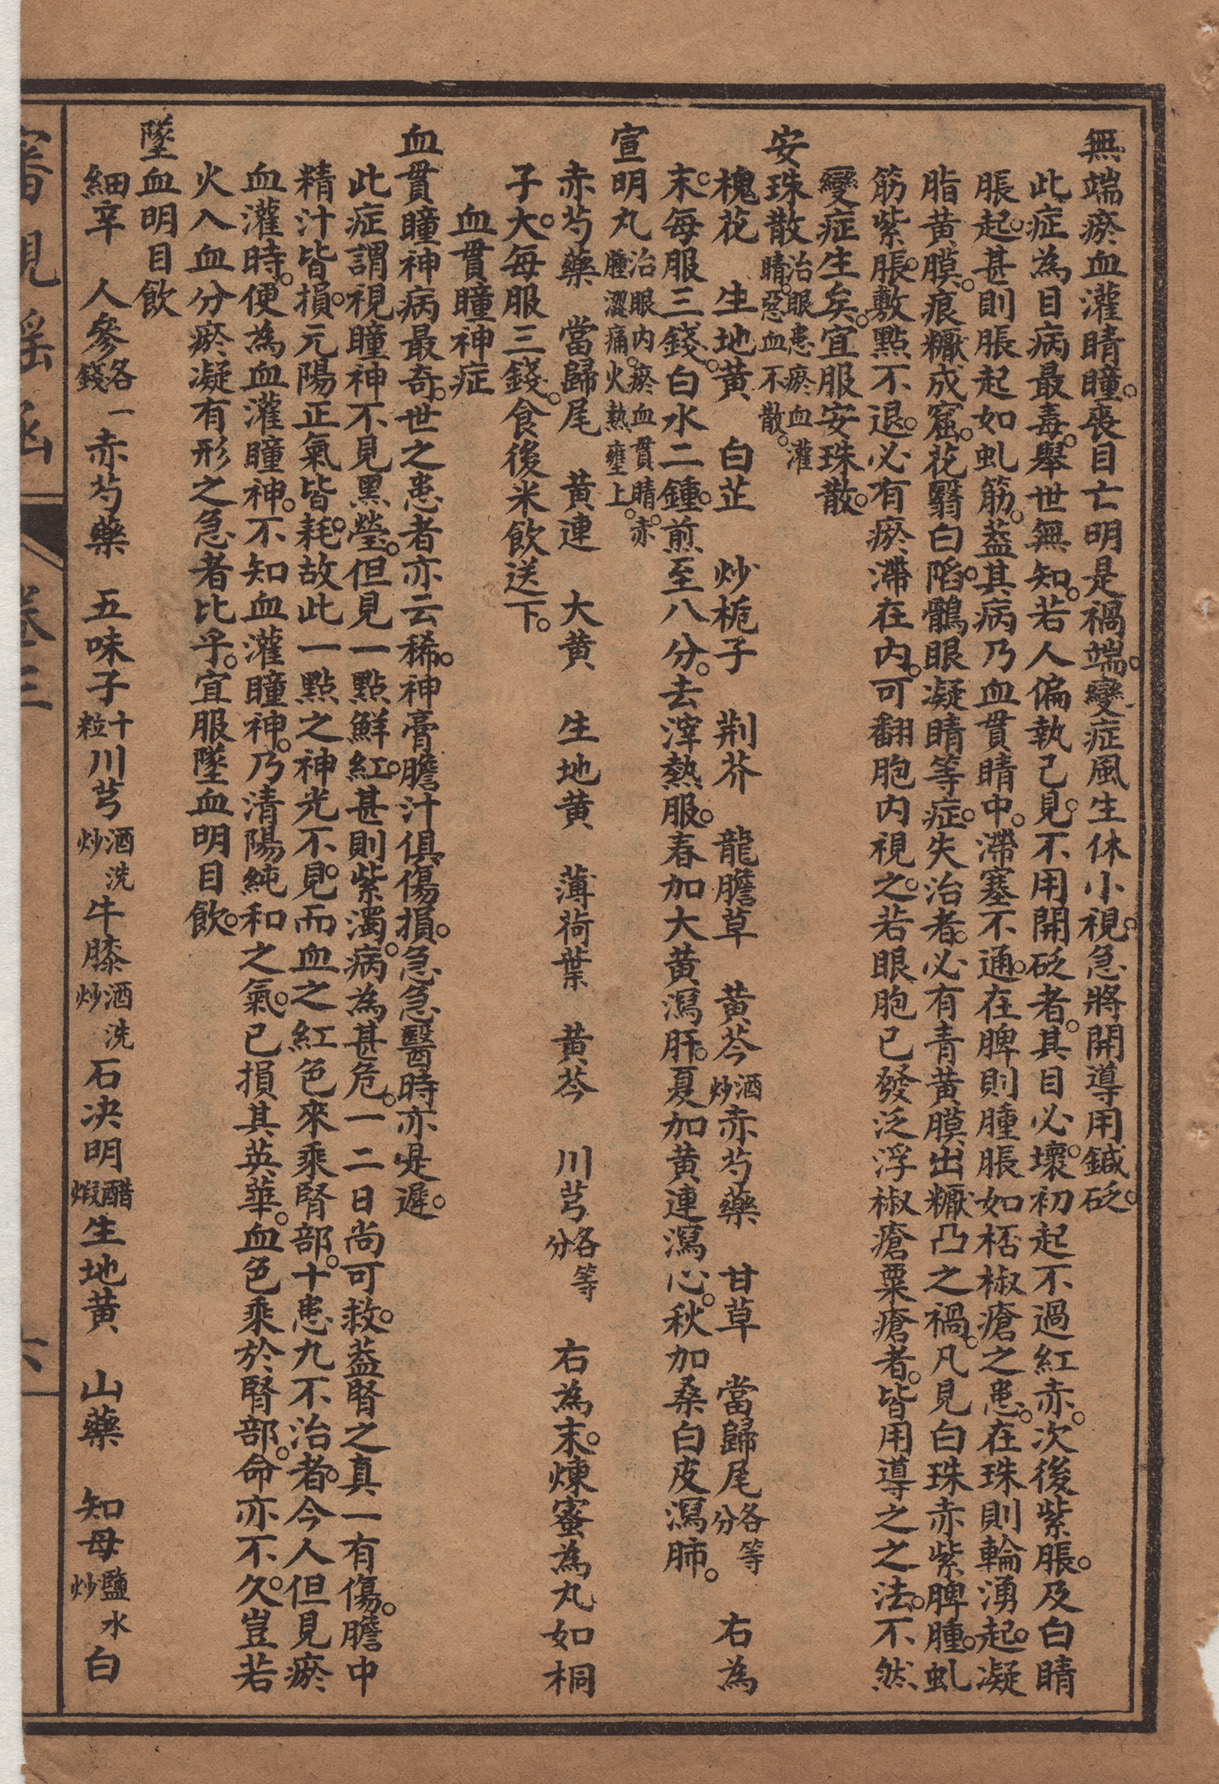 無端瘀血灌睛瞳。喪目亡明是禍端。變症風生休小視。急將開導用鍼砭。
此症為目病最毒。舉世無知。若人偏執己見。不用開砭者。其目必壞。初起不過紅赤。次後紫脹。及白睛
脹起。甚則脹起如虬筋。葢其病乃血貫睛中。滯塞不通。在脾則腫脹如桮椒瘡之患。在珠則輪湧起。凝
脂黃膜。痕𪓰成窟。花翳白陷。鶻眼凝睛等症。失治者。必有青黃膜出𪓰凸之禍。凡見白珠赤紫。脾腫。虬
筋紫脹。敷點不退。必有瘀滯在內。可翻胞內視之。若眼胞已發泛浮椒瘡粟瘡者。皆用導之之法。不然
變症生矣。宜服安珠散。
安珠散 治眼患瘀血灌睛。惡血不散。
槐花 生地黃 白芷 炒梔子 荆芥 龍膽草 黃芩酒炒 赤芍藥 甘草 當歸尾各等分 右為
末。每服三錢。白水二鍾。煎至八分。去滓熱服。春加大黃瀉肝。夏加黃連瀉心。秋加桑白皮瀉肺。
宣明丸 治眼內瘀血貫睛。赤腫澀痛。火熱壅上。
赤芍藥 當歸尾 黃連 大黃 生地黃 薄荷葉 黃芩 川芎各等分 右為末。煉蜜為丸如桐
子大。每服三錢。食後米飲送下。
血貫瞳神症
血貫瞳神病最奇。世之患者亦云稀。神膏膽汁俱傷損。急急醫時亦是遲。
此症謂視瞳神不見黑瑩。但見一點鮮紅。甚則紫濁。病為甚危。一二日尚可救。葢腎之真一有傷。膽中
精汁皆損。元陽正氣皆耗。故此一點之神光不見。而血之紅色來乘腎部。十患九不治者。今人但見瘀
血灌時。便為血灌瞳神。不知血灌瞳神。乃清陽純和之氣。已損其英華。血色乘於腎部。命亦不久。豈若
火入血分瘀凝有形之急者比乎。宜服墜血明目飲。
墜血明目飲
細辛 人參各一錢 赤芍藥 五味子十粒 川芎酒洗炒 牛膝酒洗炒 石决明醋煅 生地黃 山藥 知母鹽水炒 白
審視瑤函 卷三 六